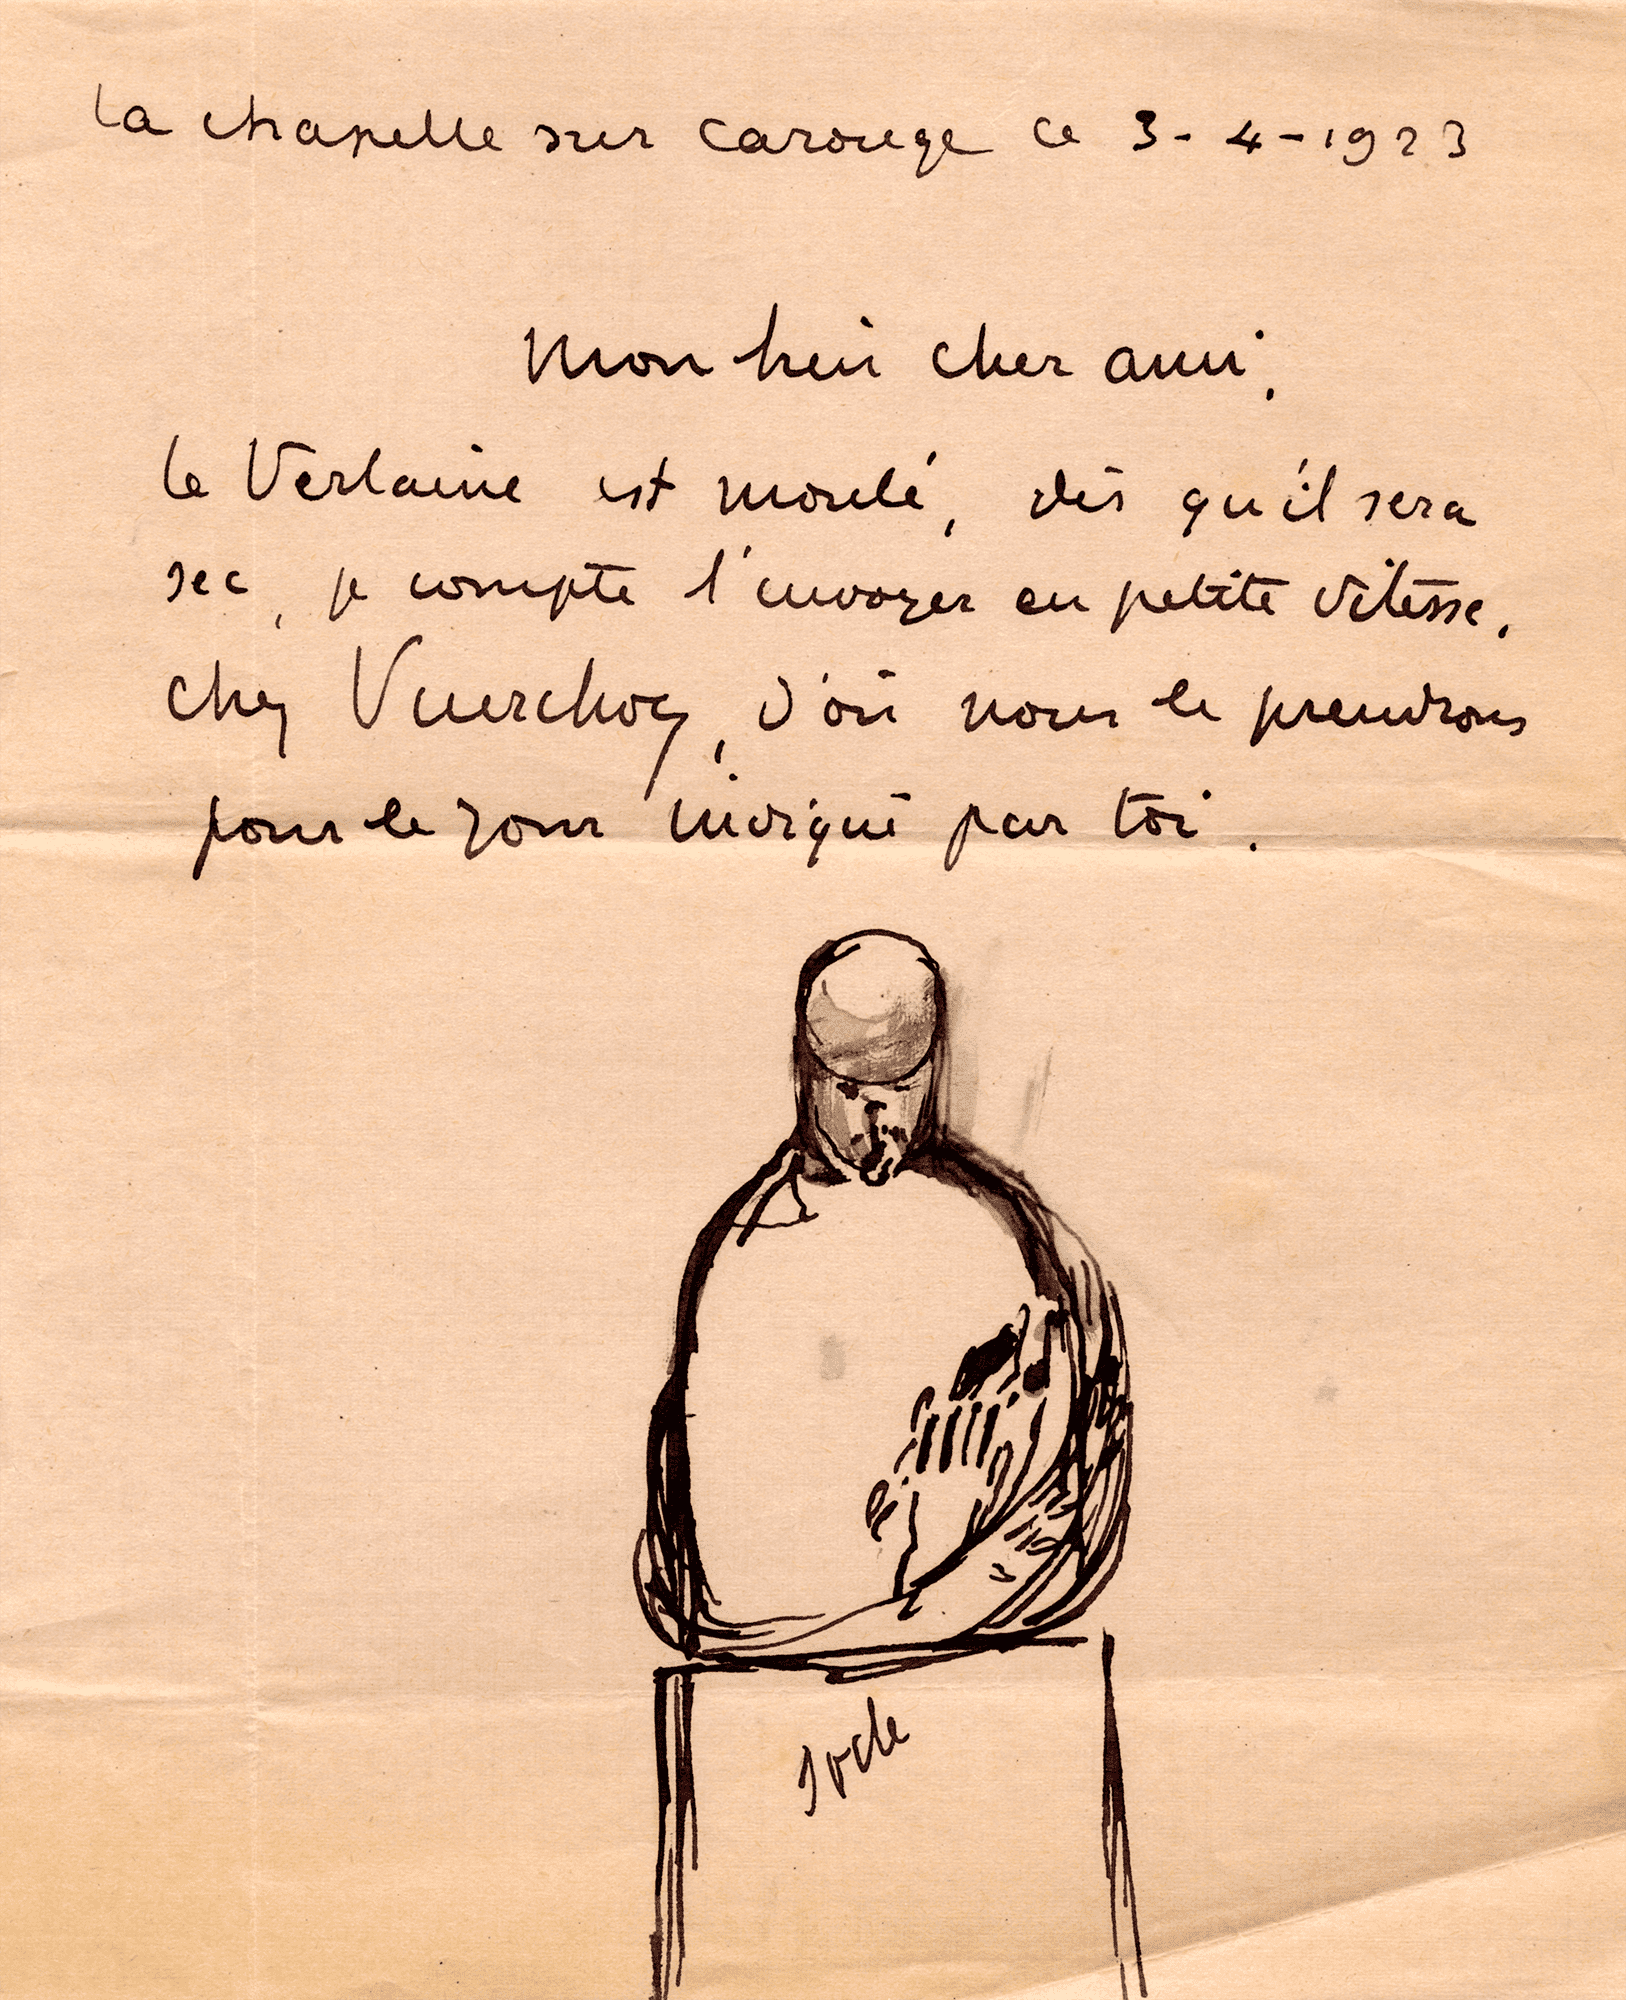 la chapelle sur carouge ce 3-4-1923
Mon bien cher ami,
le Verlaine est moulé, dès qu'il sera
sec, je compte l'envoyer en petite vitesse,
chez Vuerchoz, d'où nous le prendrons
pour le jour indiqué par toi.
Socle